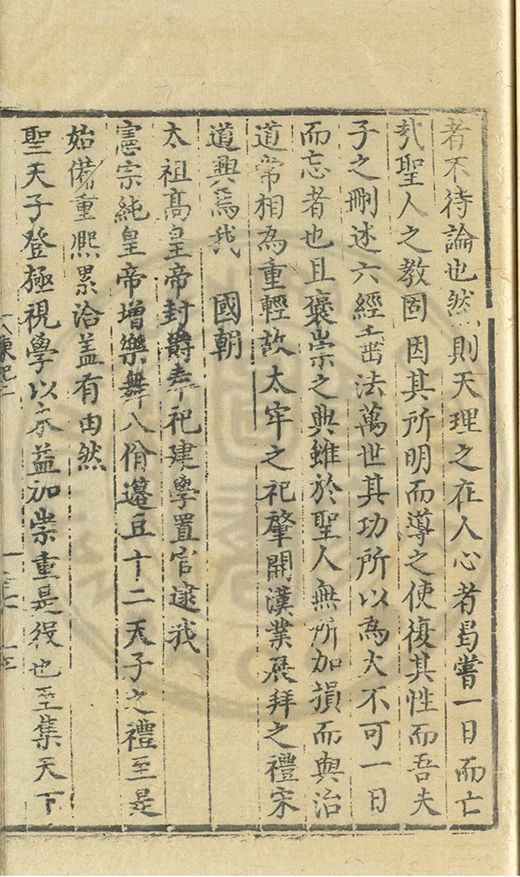 者不待論也然則天理之在人心者曷嘗一日而亡
㢤聖人之教固因其所明而導之使復其性而吾夫
子之刪述六經垂法萬世其功所以為大不可一日
而忘者也且褒崇之典雖於聖人無所加損而與治
道常相為重輕故太牢之祀肇開漢業展拜之禮宋
道興焉我　國朝
太祖高皇帝封爵奉祀建學置官逮我
憲宗純皇帝增樂舞八佾籩豆十二天子之禮至是
始備重熙累洽盖有由然
聖天子登極視學以示益加崇重是役也至集天下